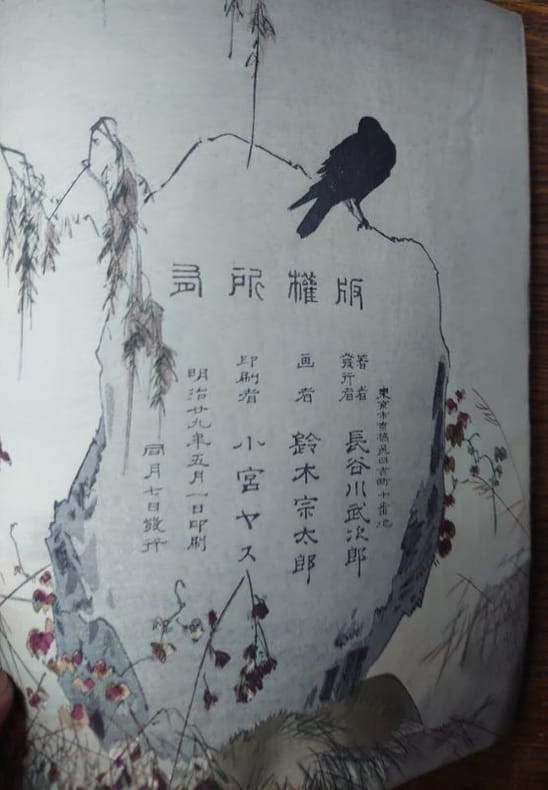 版權所有
東京市京橋區日吉町十番地
著者
發行者
長谷川武次郎
画者 鈴木宗太郎
印刷者 小宮ヤス
明治廿九年五月一日印刷
同月七日發行